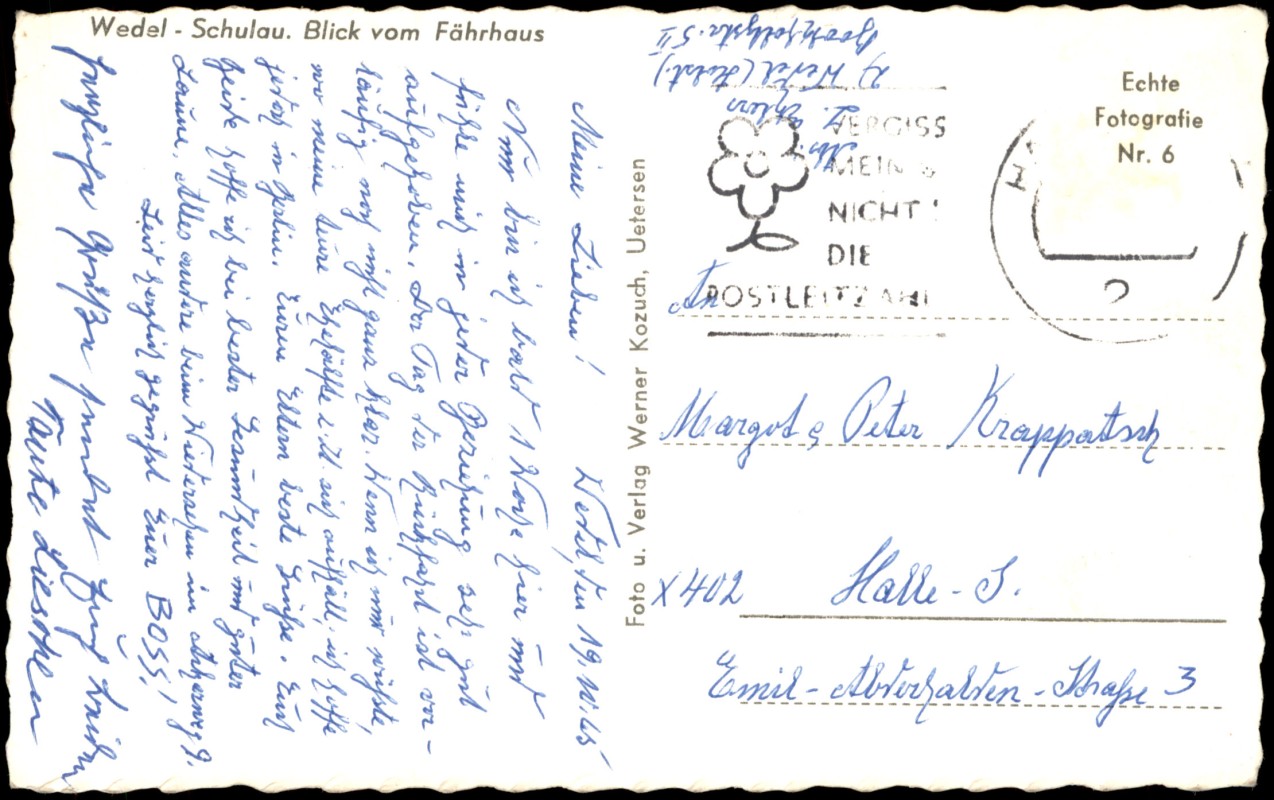 Wedel - Schulau. Blick vom Fährhaus
Wedel, den 19.10.65
Meine Lieben!
Nun bin ich bald 1 Woche hier und
fühle mich in jeder Beziehung sehr gut
aufgehoben. Der Tag der Rückfahrt ist vor-
läufig noch nicht ganz klar. Wenn ich nur wüßte,
wo meine teure Ehehälfte z. Zt. sich aufhält, ich hoffe
jedoch in Berlin. Euren Eltern beste Grüße. Euch
beide hoffe ich bei bester Gesundheit und guter
Laune. Alles andere beim Wiedersehen im 9.
Seid herzlichst gegrüßt Euer BOSS,
Herzliche Grüße sendet Euch beiden
Tante Lieschen
Foto u. Verlag Werner Kozuch, Uetersen
Abs.
Ehlers
Wedel (Holst.)
5 II
Echte
Fotografie
Nr. 6
VERGISS
MEIN
NICHT!
DIE
POSTLEITZAHL
2
An
Margot & Peter Krappatsch
X402 Halle - S.
Emil-Abderhalden-Straße 3